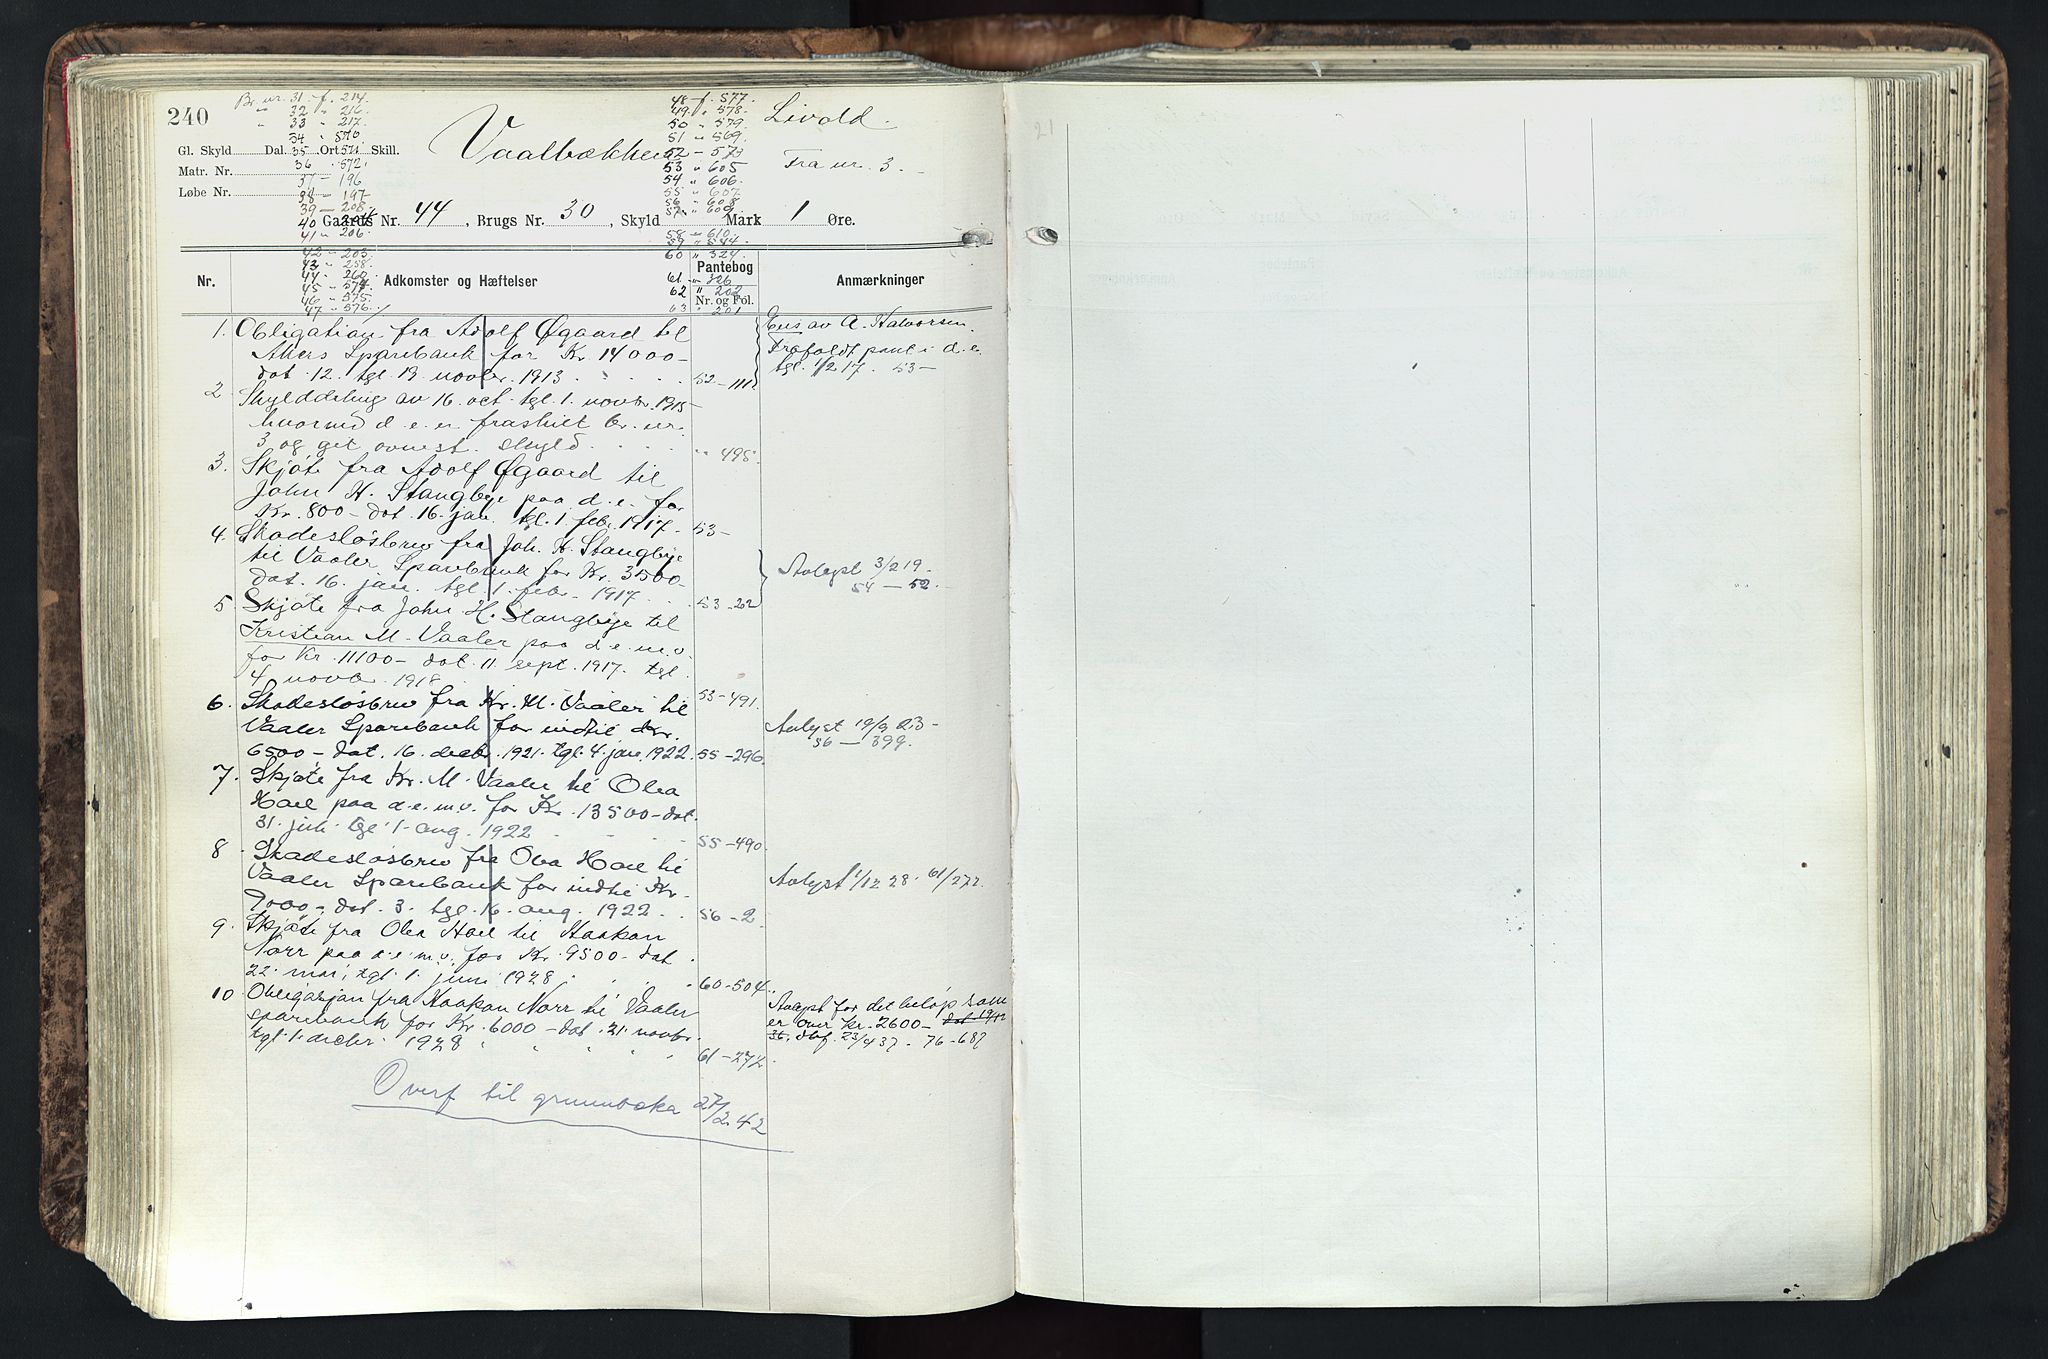 240
Br. nr. 31 - f. 214.
" 32 " 216
" 33 " 217.
34 " 570
35 571
36 " 572.
37 — 196
38 — 197
39 — 208.
40 204
41 " 206.
42 — 203.
43 " 258.
44 " 260
45 " 574
46 " 575.
47 " 576
48 - f. 577.
49 " 578.
50 " 579
51 " 569.
52 - 573
53 " 605
54 " 606.
55 " 607
56 " 608
57 " 609
58 " 610.
59 " 544.
60 " 324.
61 " 326
62 " 202
63 " 201
Vaalbækken
Livold.
Fra nr. 3.
Gl. Skyld Dal. Ort Skill.
Matr. Nr.
Løbe Nr.
Gaards Nr. 44, Brugs Nr. 30, Skyld Mark 1 Øre.
Nr. Adkomster og Hæftelser Pantebog Nr. og Fol. Anmærkninger
1. Obligation fra Adolf Øgaard til
Akers Sparebank for Kr. 14000-
dat. 12. tgl. 19. novbr. 1913. 52-111.
av A. Halvorsen.
Frafaldt pant i d.e.
tgl. 1/2 17. 53-
2 Skylddeling av 16. oct. tgl. 1. novbr. 1915-
hvorved d.e. er fraskilt br. nr.
3 og git ovnevt. skyld. " 495.
3. Skjøte fra Adolf Øgaard til
John H. Stangbye paa d.e. for
Kr. 800- dat. 16. jan. tgl. 1. febr. 1917. 53-
4. Skadesløsbrev fra Joh. H. Stangbye
til Vaaler Sparebank for Kr. 3500-
dat. 16. jan. tgl. 1. febr. 1917. 53-22
Avlyst 3/2 19.
54-52.
5. Skjøte fra John H. Stangbye til
Kristian M. Vaaler paa d.e. m.v.
for Kr. 11100- dat. 11. sept. 1917. tgl.
4 novbr. 1918. 53-491.
6. Skadesløsbrev fra Kr. M. Vaaler til
Vaaler Sparebank for indtil Kr.
6500- dat. 16. decbr. 1921. tgl. 4. jan. 1922. 55-296.
Avlyst 19/9 23-
56-399.
7. Skjøte fra Kr. M. Vaaler til Olea
Hoel paa d.e. m.v. for Kr. 13500- dat.
31. juli tgl. 1. aug. 1922 55-490.
8. Skadesløsbrev fra Olea Hoel til
Vaaler Sparebank for indtil Kr.
9000-, dat. 3. tgl. 16. aug. 1922. 56-2
Avlyst 1/12 28. 61/272.
9. Skjøte fra Olea Hoel til Haakon
Norr paa d.e. m.v. for Kr. 9500- dat.
22. mai, tgl. 1. juni 1928. 60-504.
10 Obligasjon fra Haakon Norr til Vaaler
sparebank for Kr. 6000- dat. 21. novbr.
tgl. 1. decbr. 1928 61-272.
Avlyst for det beløp som
er over kr. 2600-
36, dbf. 23/4 37. 76-687
Overf til grunnboka 27/2 42
21